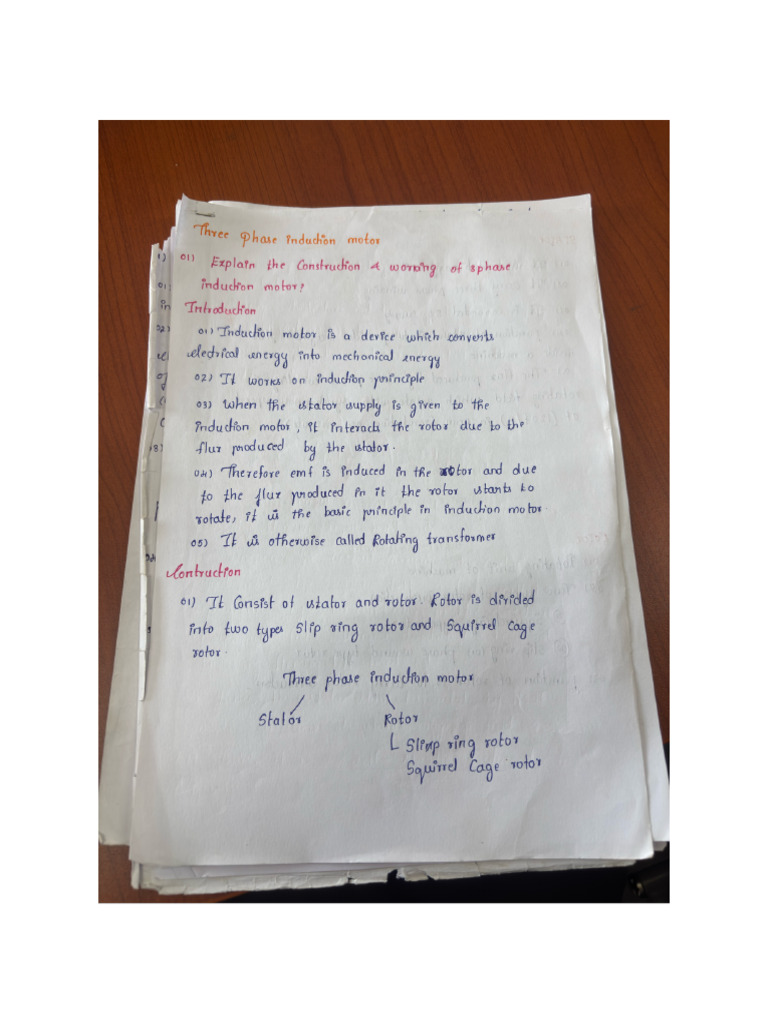 Three phase induction motor
01) Explain the Construction & working of 3phase
induction motor?
Introduction
01) Induction motor is a device which converts
electrical energy into mechanical energy
02) It works on induction principle
03) When the stator supply is given to the
induction motor, it interacts the rotor due to the
flux produced by the stator.
04) Therefore emf is induced in the rotor and due
to the flux produced in it the rotor starts to
rotate, it is the basic principle in induction motor.
05) It is otherwise called Rotating transformer
Contruction
01) It Consist of stator and rotor. Rotor is divided
into two types Slip ring rotor and Squirrel Cage
rotor.
Three phase induction motor
Stator Rotor
Slip ring rotor
Squirrel Cage rotor